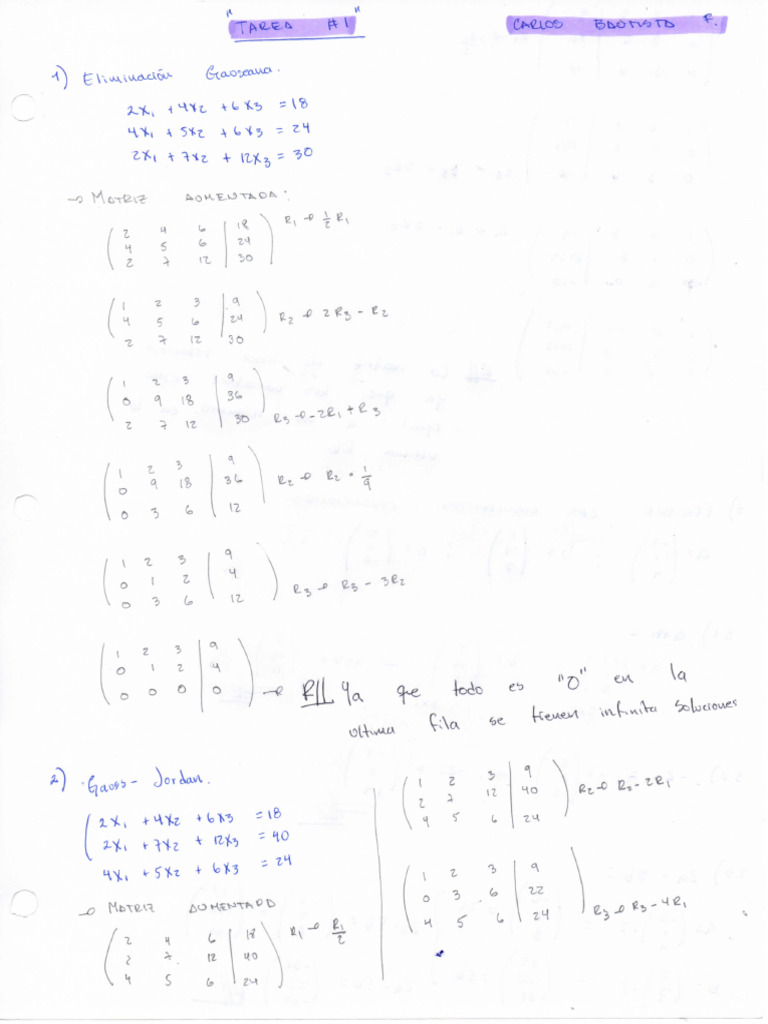 "TAREA #1"
CARLOS BAUTISTA F.
1) Eliminación Gausseana.
2x₁ + 4x₂ + 6x₃ = 18
4x₁ + 5x₂ + 6x₃ = 24
2x₁ + 7x₂ + 12x₃ = 30
→ MATRIZ AUMENTADA:
( 2 4 6 | 18 ) R₁ → 1/2 R₁
( 4 5 6 | 24 )
( 2 7 12 | 30 )
( 1 2 3 | 9 )
( 4 5 6 | 24 ) R₂ → 2R₃ - R₂
( 2 7 12 | 30 )
( 1 2 3 | 9 )
( 0 9 18 | 36 )
( 2 7 12 | 30 ) R₃ → -2R₁ + R₃
( 1 2 3 | 9 )
( 0 9 18 | 36 ) R₂ → R₂ * 1/9
( 0 3 6 | 12 )
( 1 2 3 | 9 )
( 0 1 2 | 4 )
( 0 3 6 | 12 ) R₃ → R₃ - 3R₂
( 1 2 3 | 9 )
( 0 1 2 | 4 )
( 0 0 0 | 0 ) → R// Ya que todo es "0" en la
ultima fila se tienen infinita soluciones
2) Gauss-Jordan.
2x₁ + 4x₂ + 6x₃ = 18
2x₁ + 7x₂ + 12x₃ = 40
4x₁ + 5x₂ + 6x₃ = 24
→ MATRIZ AUMENTADA
( 2 4 6 | 18 ) R₁ → R₁/2
( 2 7 12 | 40 )
( 4 5 6 | 24 )
( 1 2 3 | 9 )
( 2 7 12 | 40 ) R₂ → R₂ - 2R₁
( 4 5 6 | 24 )
( 1 2 3 | 9 )
( 0 3 6 | 22 )
( 4 5 6 | 24 ) R₃ → R₃ - 4R₁